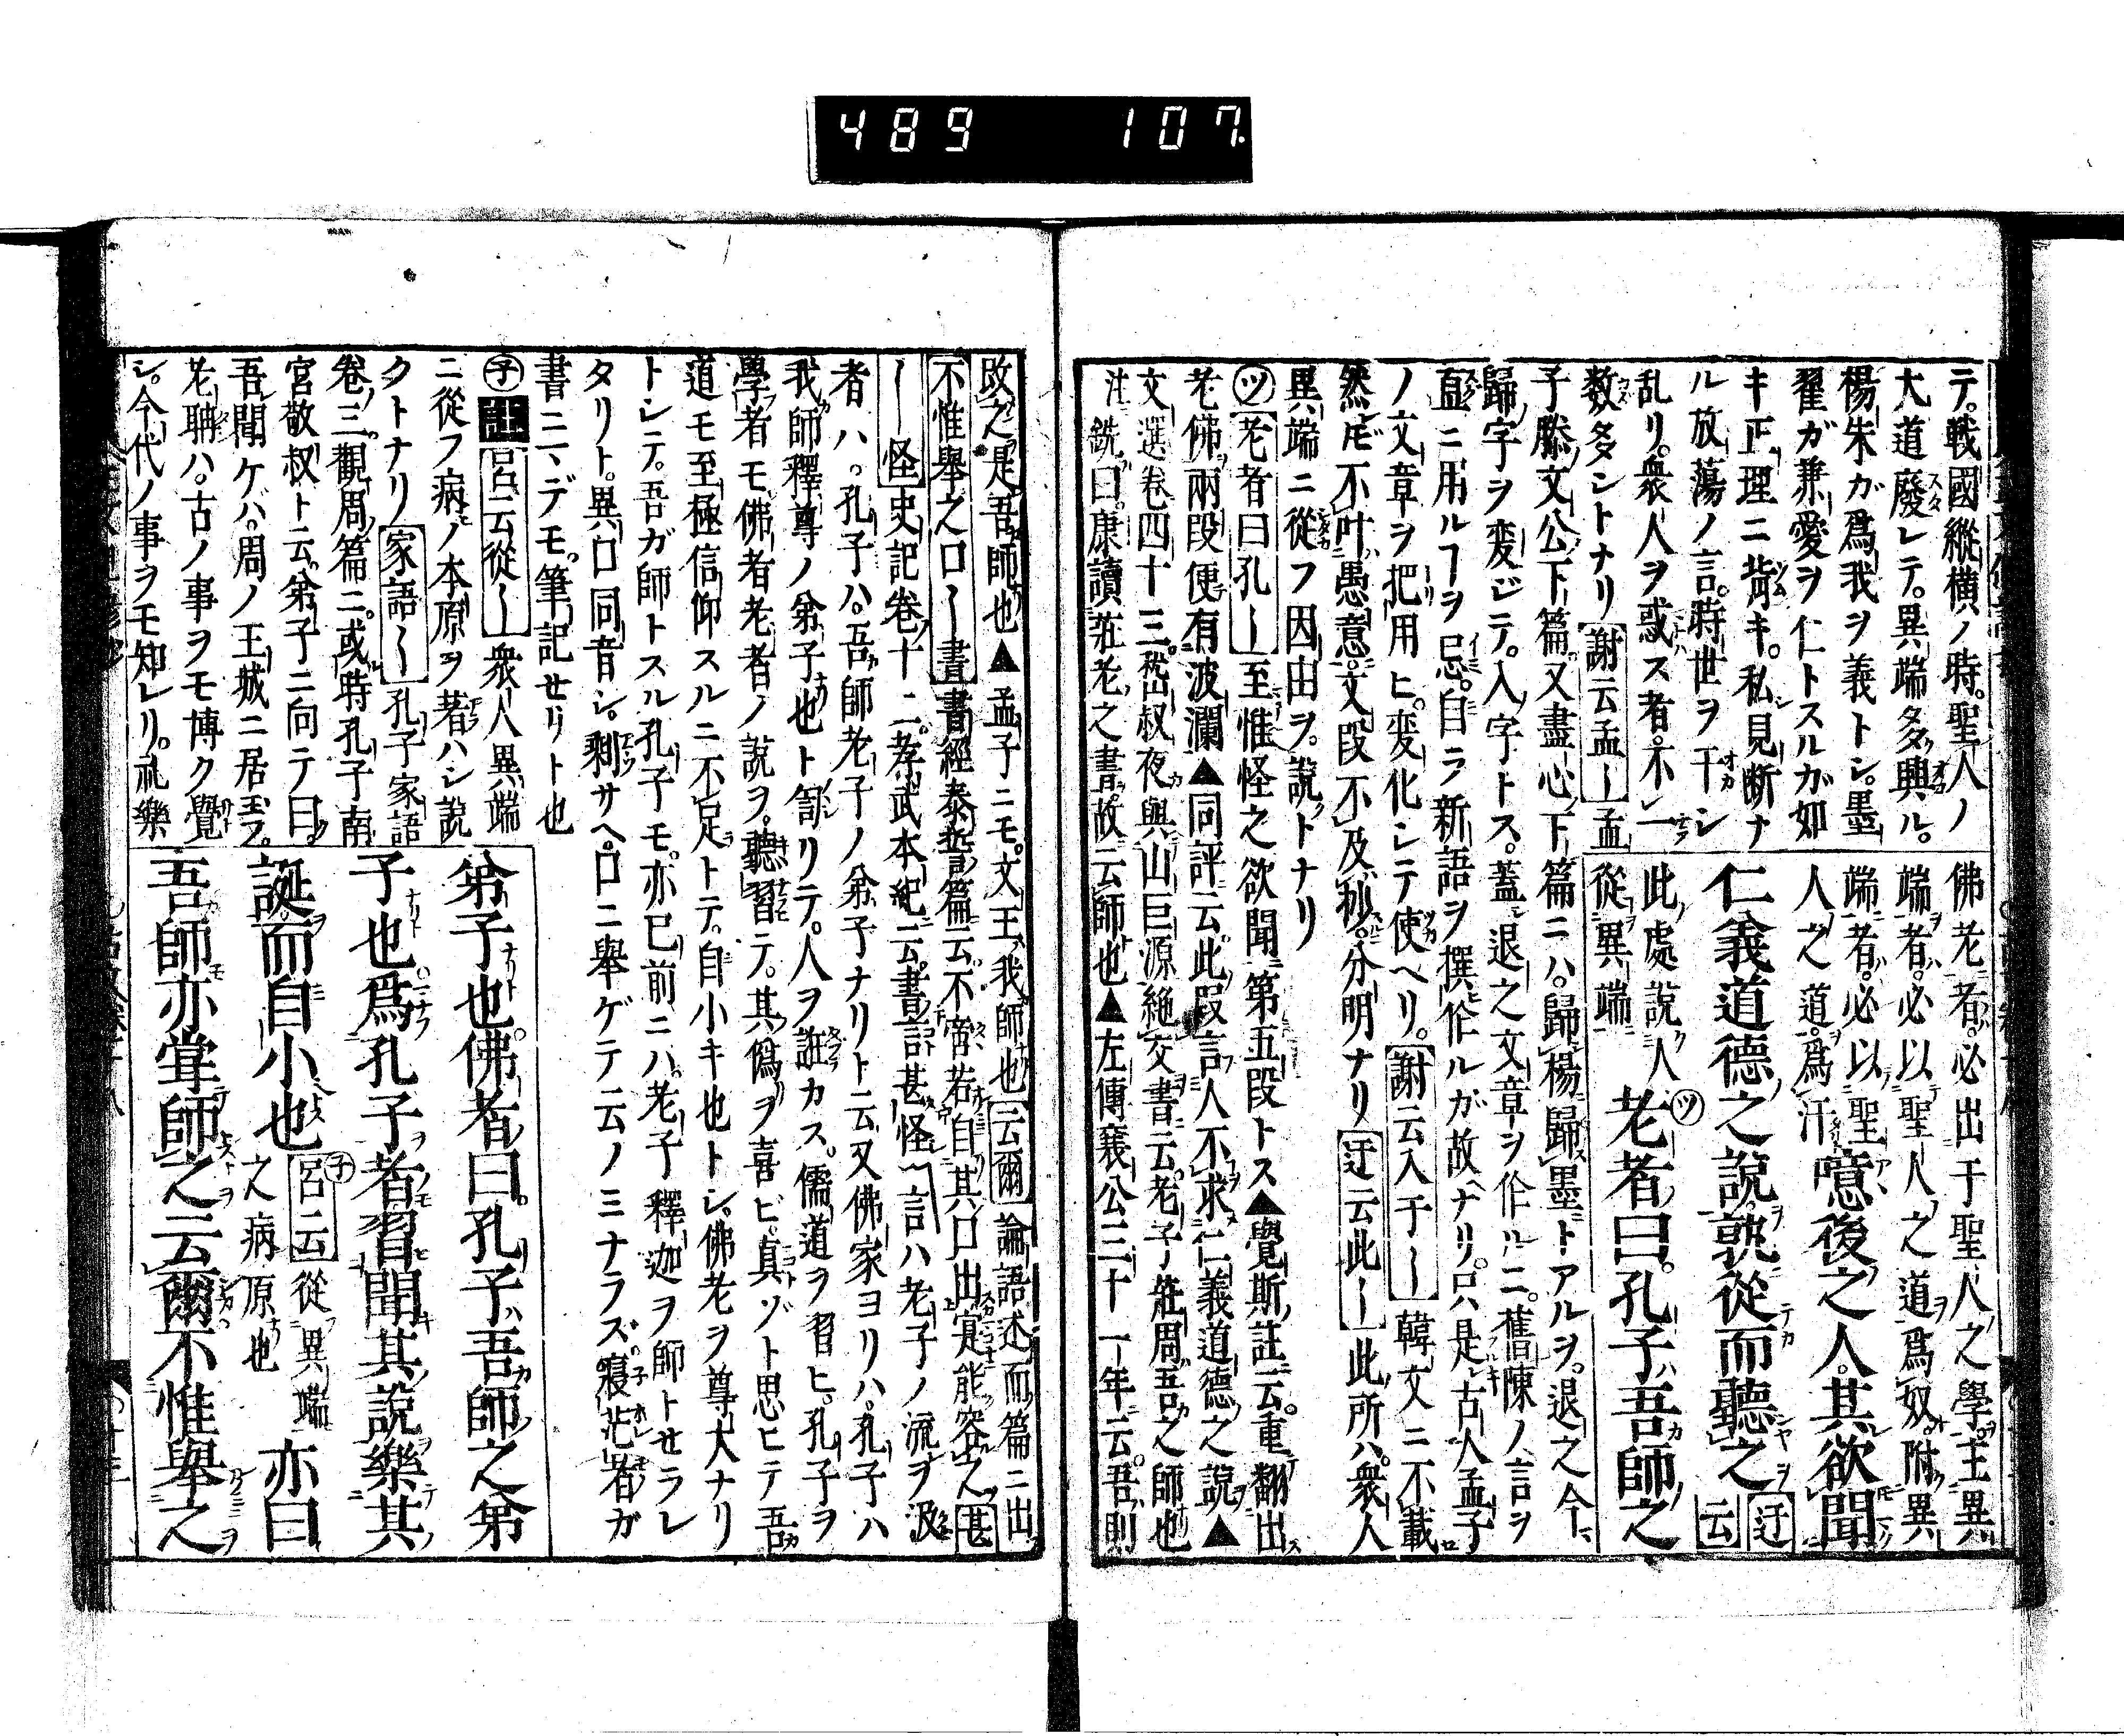 489 107.
テ。戰國縱横ノ時。聖人ノ
大道廢レテ。異端多ク興ル。
楊朱ガ爲我ヲ義トシ。墨
翟ガ兼愛ヲ仁トスルガ如
キ正理ニ背キ。私見断ナ
ル放蕩ノ言。時世ヲ干シ
乱リ。衆人ヲ惑ス者。不一
数多シトナリ 謝云孟ー 孟
佛老者。必出于聖人之學。主異
端者。必以聖人之道爲奴。附異
端者。必以聖
人之道。爲汗 噫後之人其欲聞
仁義道德之說孰從而聽之 迂云
此處說人
從異端 ツ 老者曰。孔子吾師之
子滕文公下篇又盡心下篇ニハ。歸楊歸墨トアルヲ。退之今
歸字ヲ変ジテ。入字トス。蓋退之文章ヲ作ルニ。舊陳ノ言ヲ
直ニ用ルヿヲ忌。自ラ新語ヲ撰作ルガ故ナリ。只是古人孟子
ノ文章ヲ把用ヒ。変化シテ使ヘリ。 謝云入于ー 韓文ニ不載
然𪜈不叶愚意。文段不及抄。分明ナリ 迂云此ー 此所ハ。衆人
異端ニ從フ因由ヲ。說トナリ
ツ 老者曰孔ー 至惟怪之欲聞第五段トス▲覺斯註云。重翻出
老佛兩段便有波瀾▲同評云此段言人不求仁義道德之說▲
文選卷四十三。嵆叔夜與山巨源絶交書云。老子莊周吾之師也
注銑曰。康讀莊老之書。故云師也▲左傳襄公三十一年云。吾則
改之是吾師也▲孟子ニモ。文王我師也 云爾 論語述而篇ニ出
不惟舉之口ー書 書經泰誓篇云不啻若自其口出寔能容之 甚
ー怪 史記卷十二。孝武本紀云。書言甚怪 言ハ老子ノ流ヲ汲
者ハ。孔子ハ。吾師老子ノ弟子ナリト云又佛家ヨリハ。孔子ハ
我師釋尊ノ弟子也ト訇リテ。人ヲ誑カス。儒道ヲ習ヒ。孔子ヲ
學者モ。佛者老者ノ說ヲ。聽習テ。其僞ヲ喜ビ。真ゾト思ヒテ吾
道モ至極信仰スルニ不足トテ。自小キ也トシ。佛老ヲ尊大ナリ
トシテ。吾ガ師トスル孔子モ。亦已前ニハ。老子釋迦ヲ師トセラレ
タリト。異口同音シ。剩サヘ。口ニ舉ゲテ云ノミナラズ。寢茫者ガ
書ニ、デモ。筆記せリト也
子 註 呂云從ー 衆人異端
ニ從フ病ノ本原ヲ著ハシ說
クトナリ 家語ー 孔子家語
卷三。觀周篇ニ。或時孔子南
宮敬叔ト云。弟子ニ向テ曰。
吾聞ケバ。周ノ王城ニ居玉フ。
老聃ハ。古ノ事ヲモ博ク覺
シ。今代ノ事ヲモ知レリ。礼樂
弟子也。佛者曰。孔子吾師之弟
子也。爲孔子者習聞其說樂其
誕而自小也 子 呂云從異端
之病原也 亦曰
吾師亦甞師之云爾不惟舉之